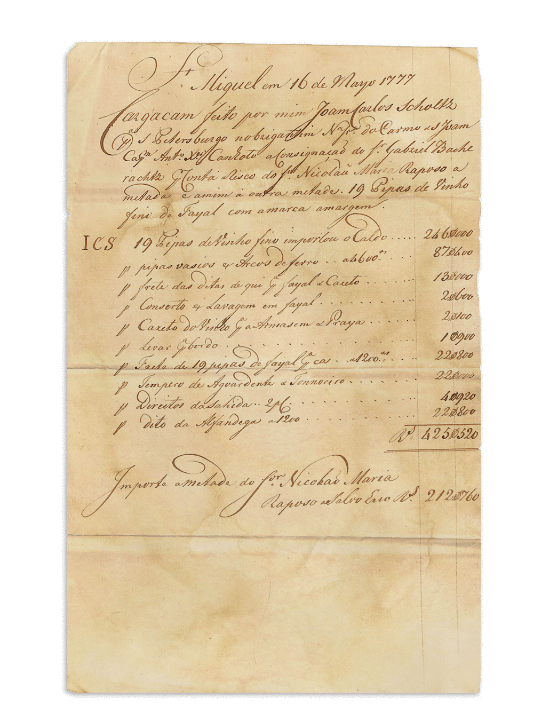 S. Miguel em 16 de Março 1777
Cargacam feito por mim Joam Carlos Scholtz
p S Petersburgo no brigantim N Sra do Carmo e S Joam
Capn Antº Xer Cantoto a Consignaçaõ do Sr. Gabriel Bache
rachtz Conta Risco do Snr Nicolau Maria Raposo a
metade e amim a outra metade. 19 Pipas de Vinho
fino de Fayal com a marca a margem.
ICS 19 Pipas de Vinho fino importou o Caldo ..... 246$000
p pipas vasios & Arcos de ferro .. a 4600 rs .... 87$400
p frete das ditas de que Fayal a Caxeto .... 13$000
p Conserto & Lavagem em fayal ..... 2$600
p Caxeto do Vinho a Armasem a Praya .... 2$100
p Levar bordo ..... 1$900
p Frete de 19 pipas de fayal .. a 1200 rs .... 22$800
p Tempero de Agoardente a Tonnoeiro ..... 22$000
p Direitos da Sahida .. 2 pC ..... 4$920
p dito da Alfandega a 1200 ..... 22$800
Rs 425$520
Importe a metade do Snr Nicolaó Maria
Raposo a Salvo Erro Rs 212$760